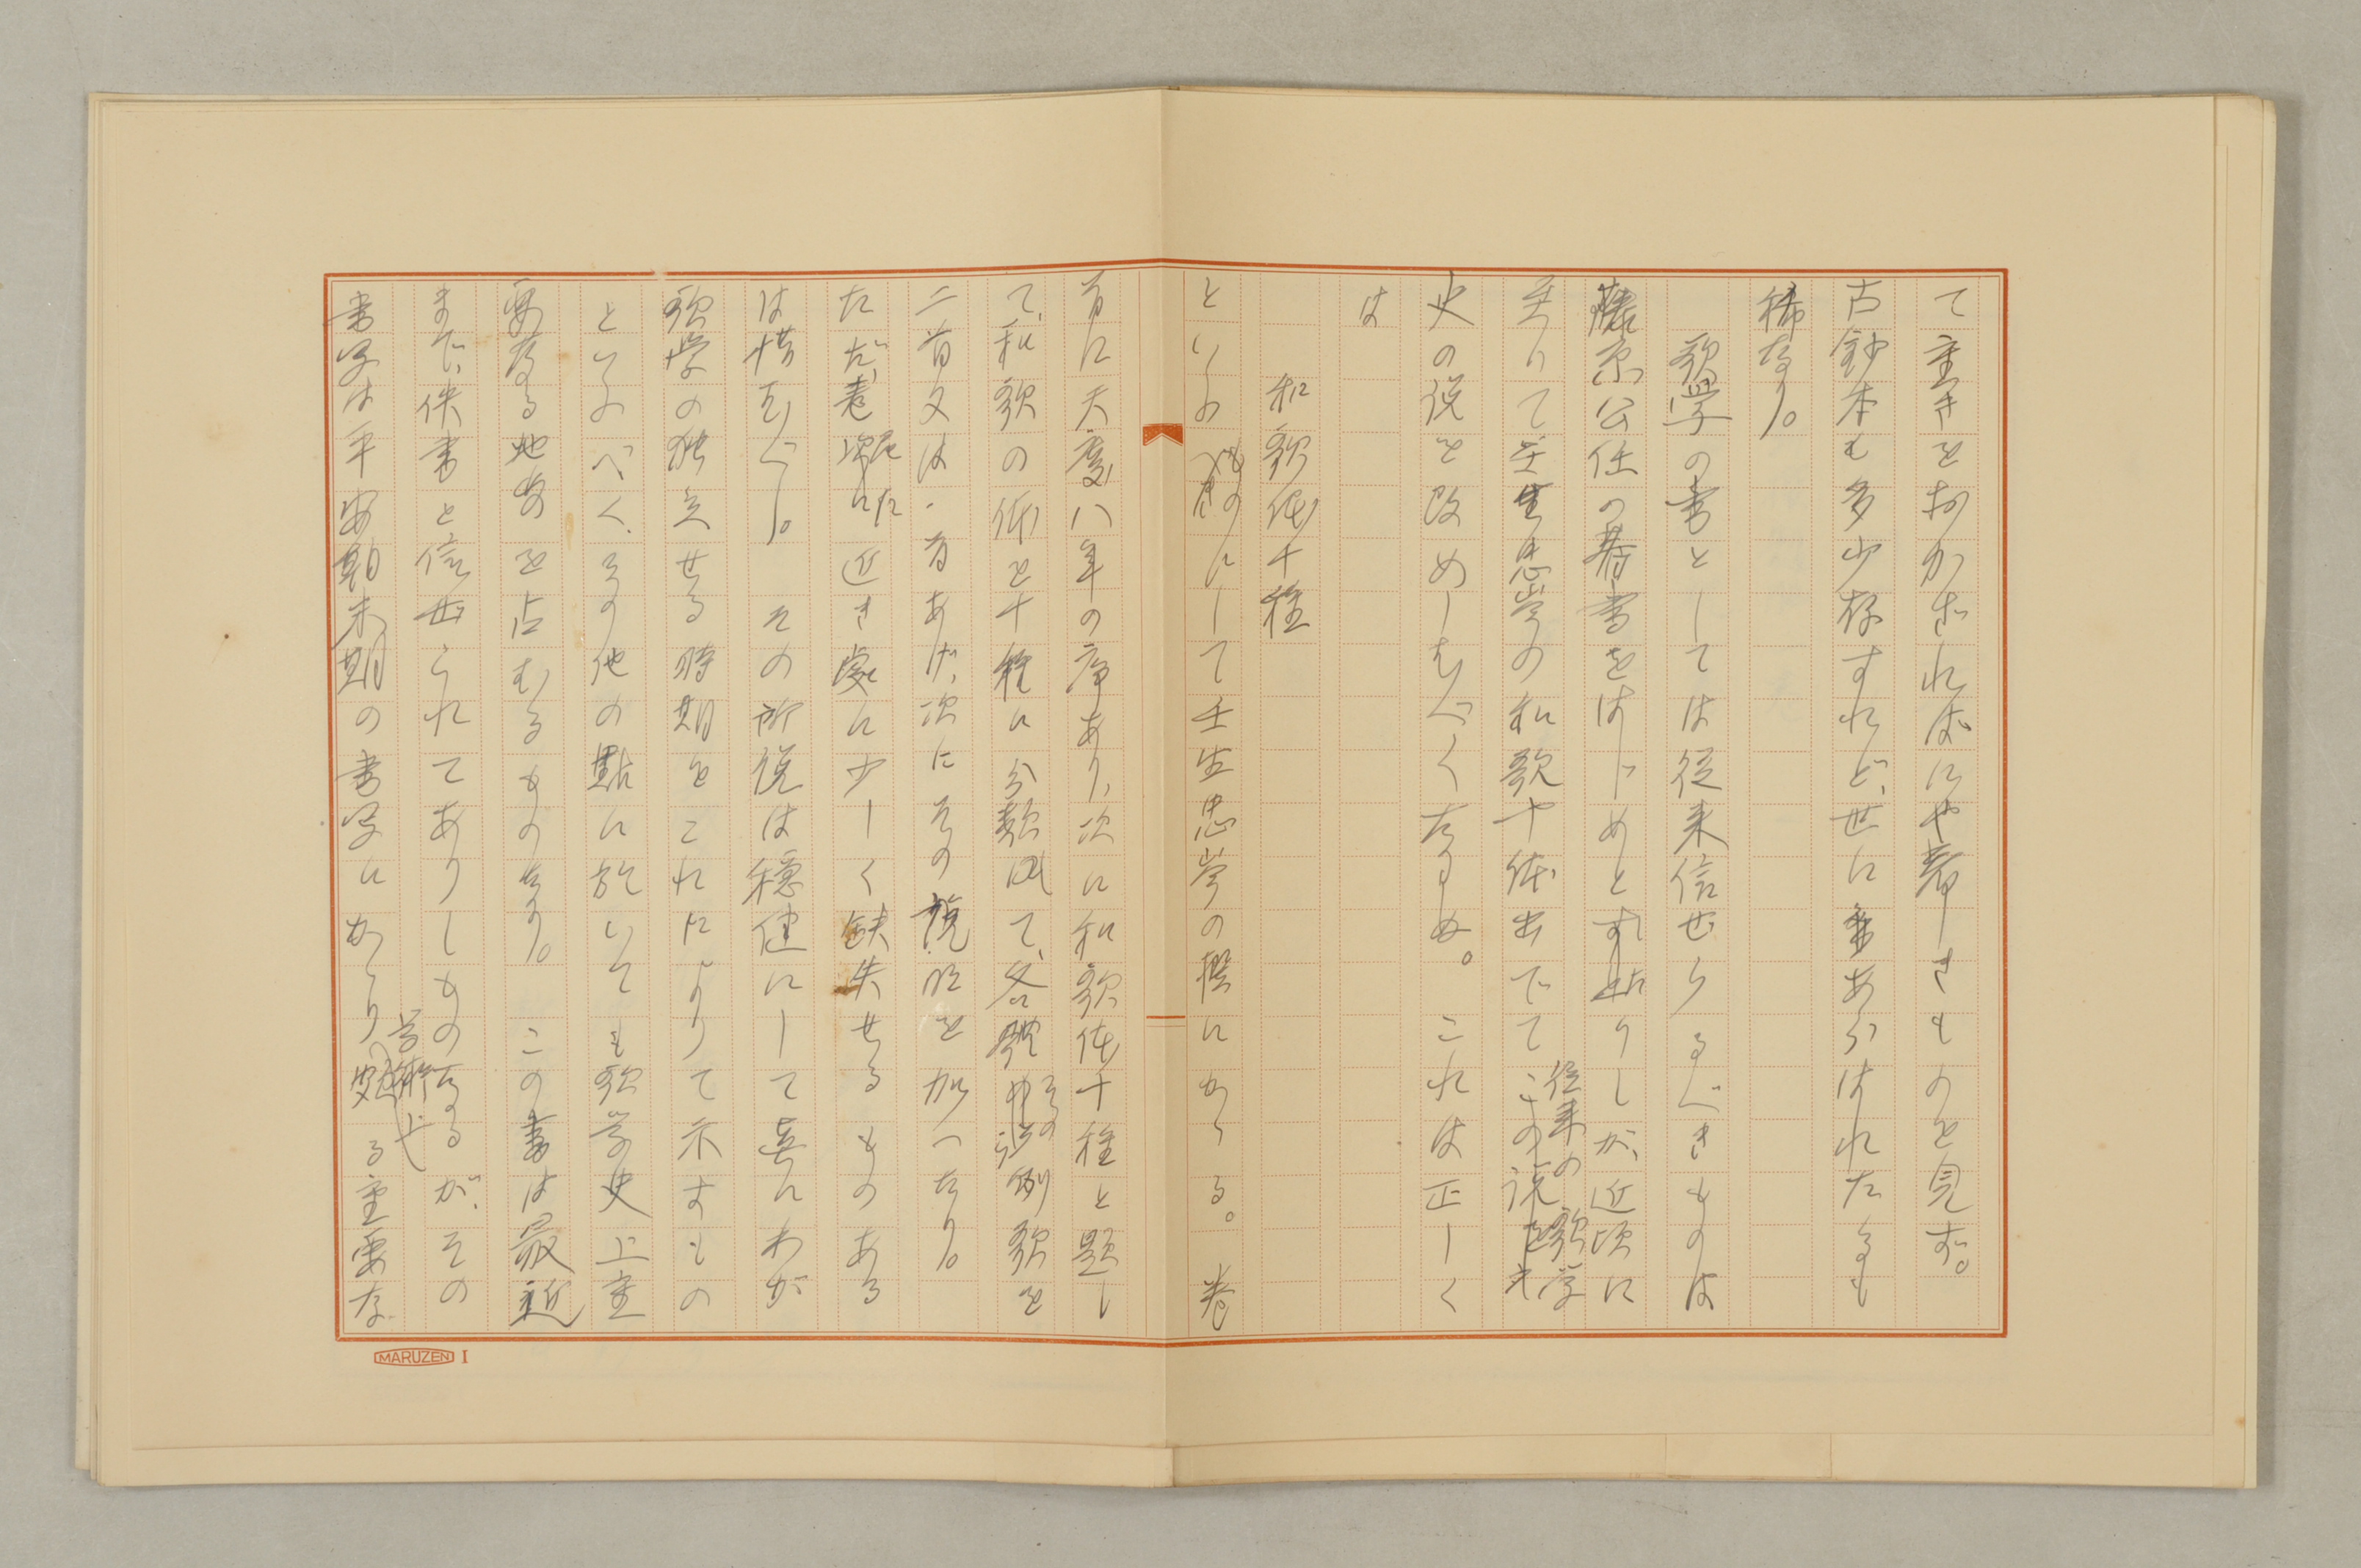 て重きをおかざればにや著しきものを見ず。
古鈔本も多少存すれど、世にあらはれたるも
稀なり。
歌学の書としては従来信ぜらるべきものは
藤原公任の著書をはじめとすれりしが、近頃に
至りて壬生忠岑の和歌十体出でて従来の歌学
史の説を改めしむべくなりぬ。これは正しく
は
和歌体十種
といふものにして壬生忠岑の撰にかゝる。巻
首に天慶八年の序あり、次に和歌体十種と題し
て、和歌の体を十種に分類して、各体その例歌を
二首又は一首あげ、次にその説明を加へたり。
ただ巻尾に近き處に少しく缺失せるものある
は惜むべし。その所説は穏健にして善くわが
歌学の独立せる時期をこれによりて示すもの
といふべく、その他の點に於いても歌学史上重
要なる地歩を占むるものなり。この書は最近
まで、佚書と信ぜられてありしものなるが、その
書写は平安朝末期の書写にかゝり学術上頗る重要な
MARUZEN I